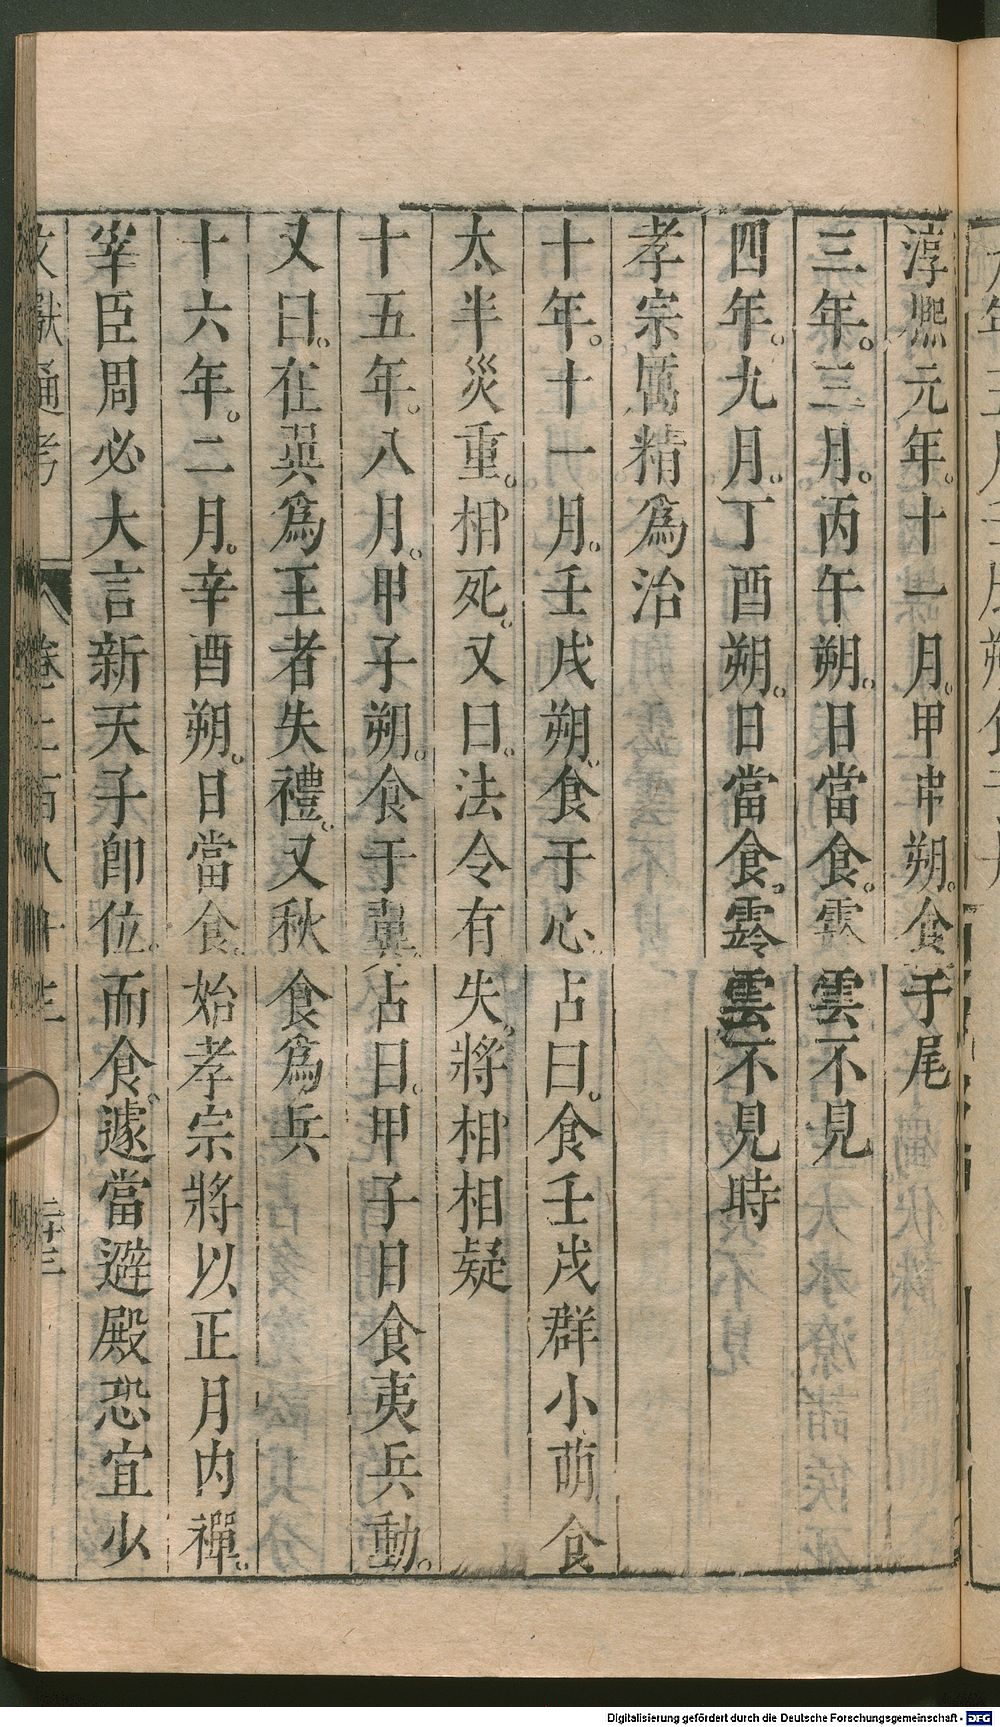 淳熙元年。十一月。甲申朔。食于尾
三年。三月。丙午朔。日當食。雲不見
四年。九月。丁酉朔。日當食。霧雲不見時
孝宗厲精爲治
十年。十一月。壬戌朔。食于心。占曰。食壬戌群小萌食
太半災重。相死。又曰。法令有失。將相相疑
十五年。八月。甲子朔。食于翼。占曰。甲子日食夷兵動。
又曰。在巽爲王者失禮。又秋食爲兵
十六年。二月。辛酉朔。日當食。始孝宗將以正月内禪。
宰臣周必大言新天子卽位。而食。遽當避殿恐宜少
文獻通考 卷二百八十三 三十三
Digitalisierung gefördert durch die Deutsche Forschungsgemeinschaft - DFG